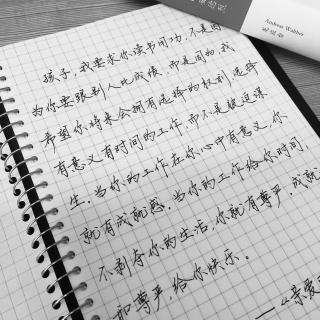 孩子,我要求你读书用功,不是因
为你要跟别人比成绩,而是因为,我
希望你将来会拥有选择的权利,选择
有意义有时间的工作,而不是被迫谋
生。当你的工作在你心中有意义,你
就有成就感。当你的工作给你时间
不剥夺你的生活,你就有尊严,成就
和尊严,给你快乐。
——《亲爱
Andreas Walther